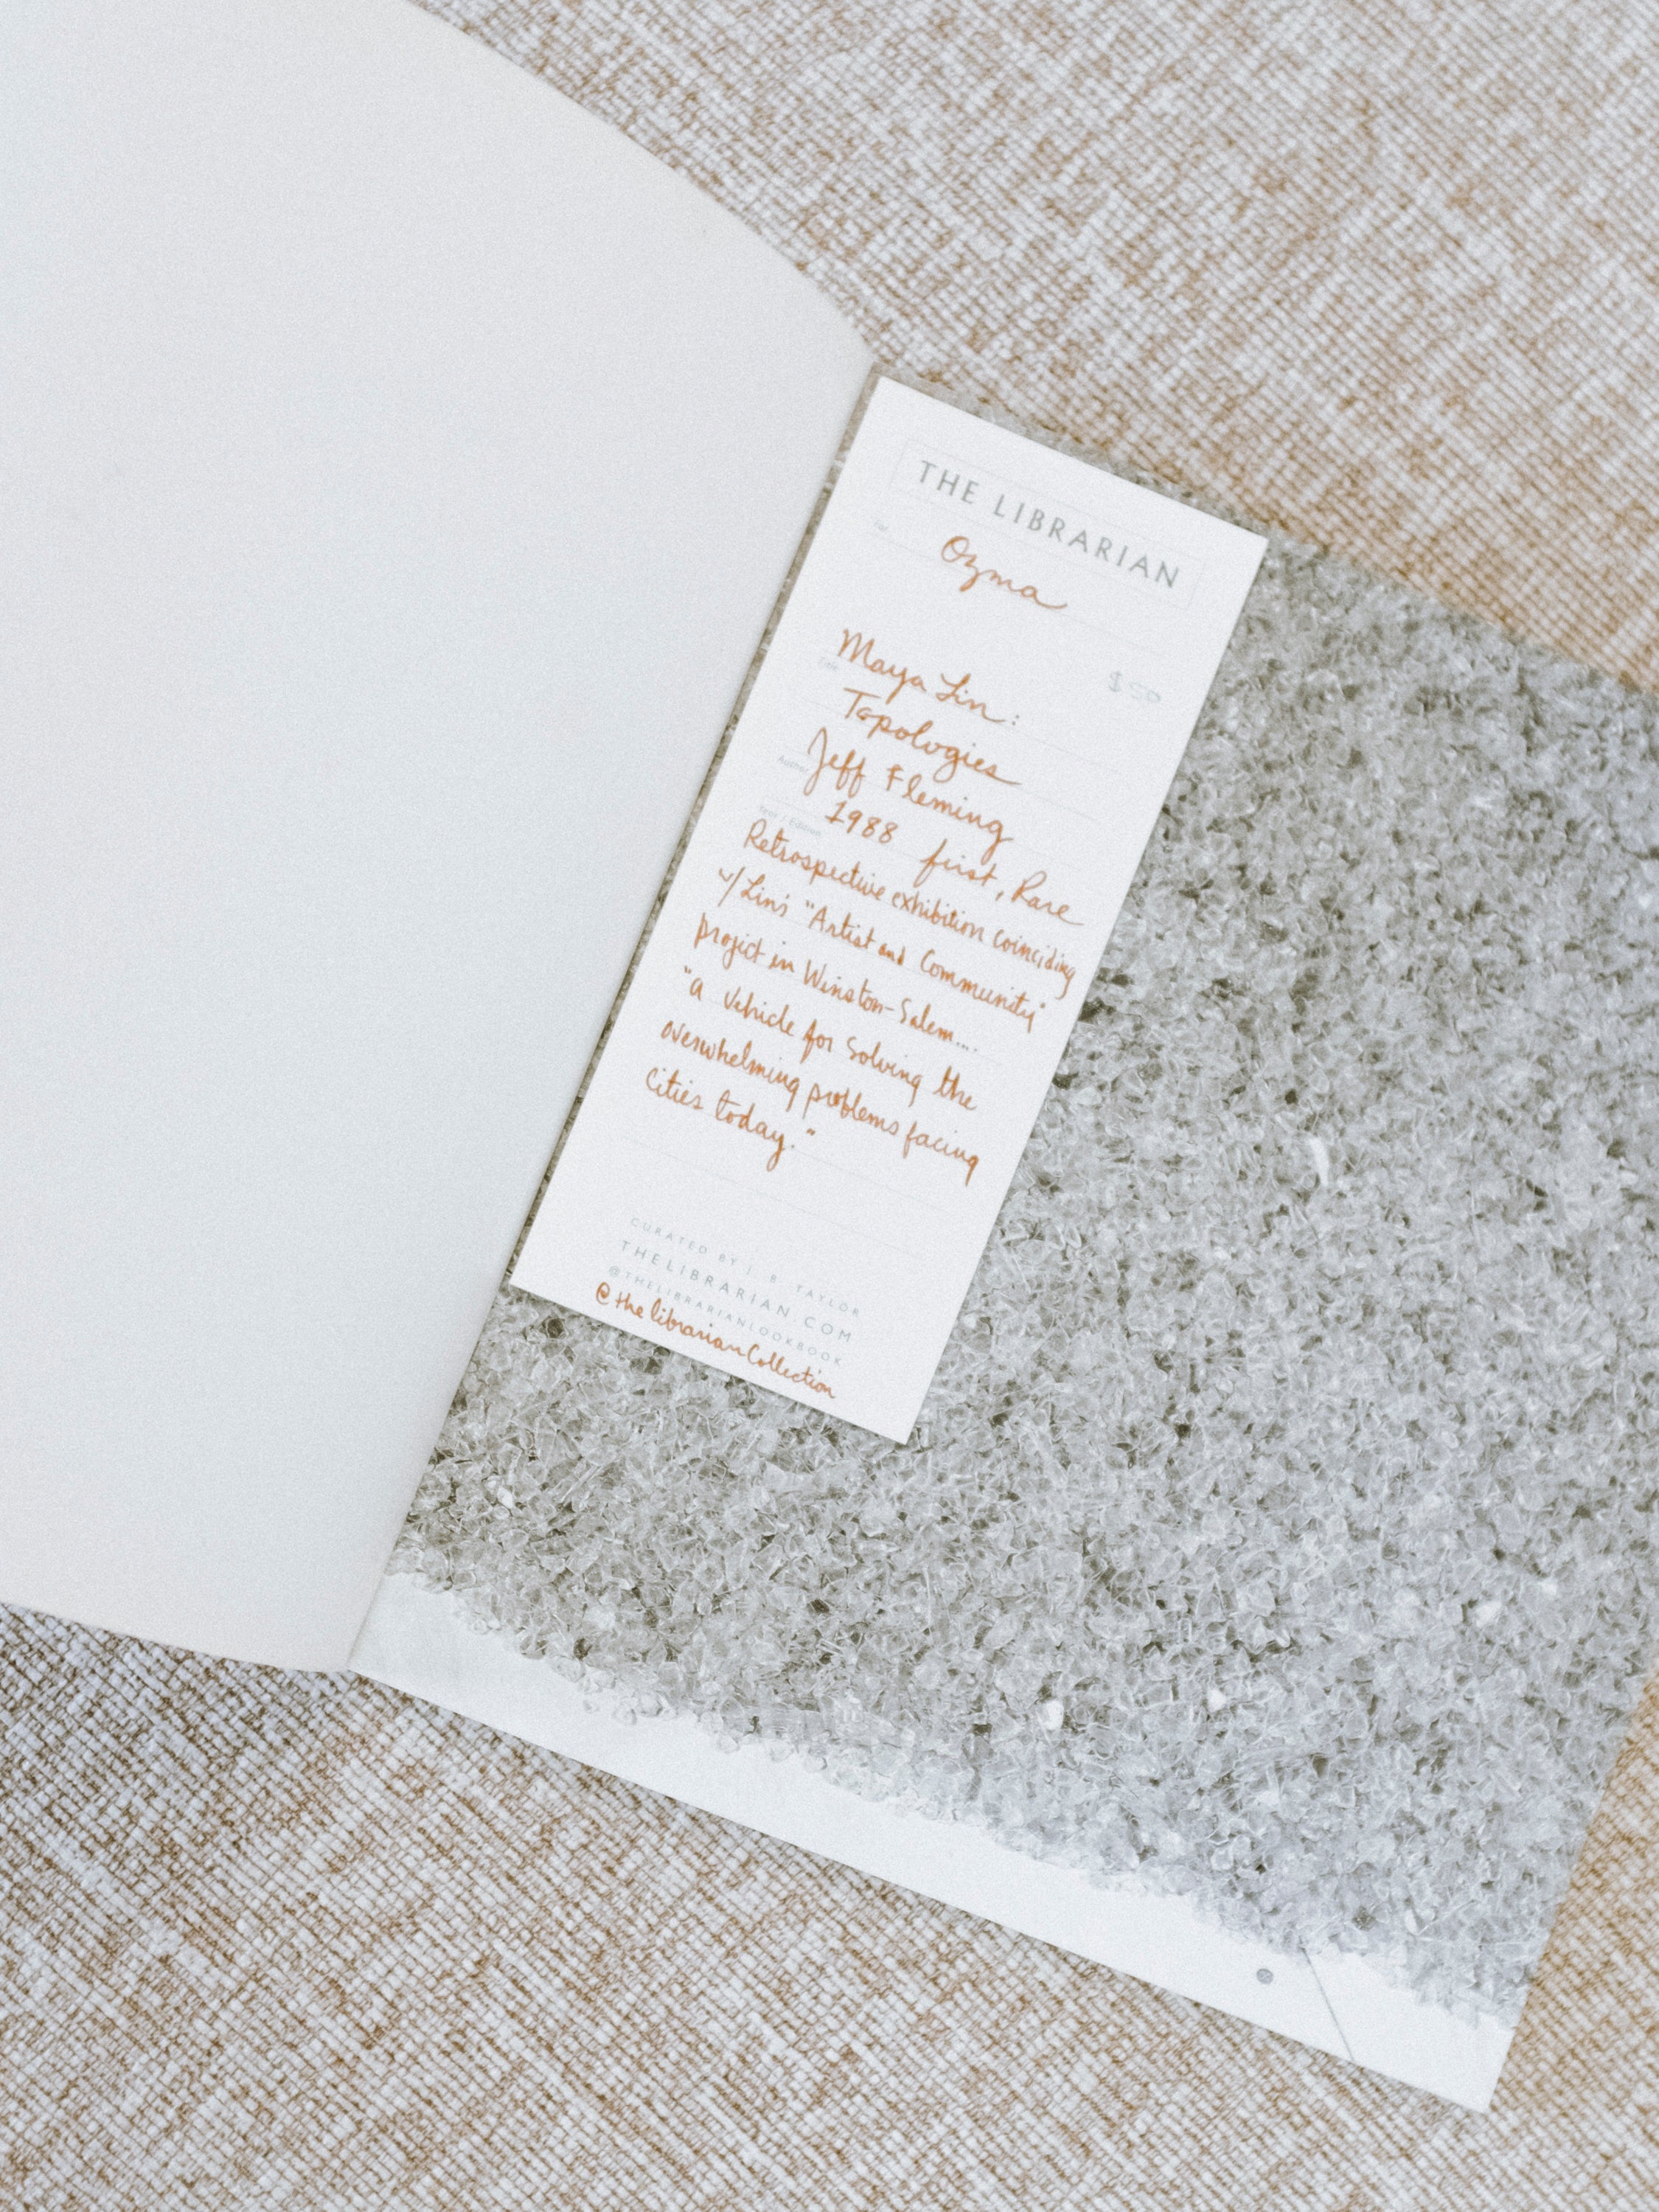 THE LIBRARIAN
For
Ozma
$50
Title
Maya Lin:
Topologies
Author
Jeff Fleming
Year / Edition
1988 first, Rare
Retrospective exhibition coinciding
w/ Lin's "Artist and Community"
project in Winston-Salem...
"a vehicle for solving the
overwhelming problems facing
cities today."
CURATED BY J. B. TAYLOR
THELIBRARIAN.COM
@THELIBRARIANLOOKBOOK
@thelibrarianCollection